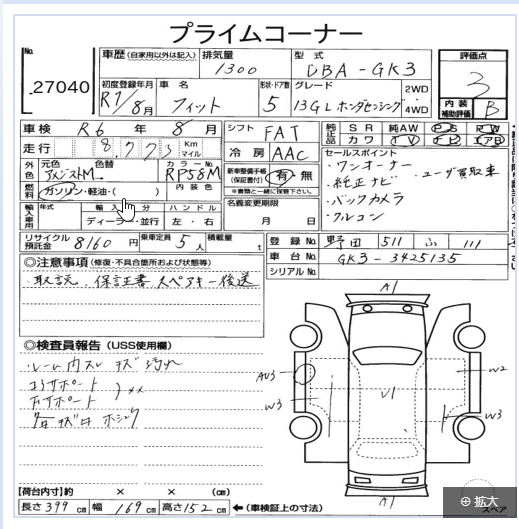 プライムコーナー
No. 27040
車歴 (自家用以外は記入) 排気量 1300 型式 DBA-GK3 評価点 3
初度登録年月 R1/8月 車名 フィット 形状・ドア数 5 グレード 13GL ホンダセンシング 2WD 4WD 内装補助評価 B
車検 R6年8月 シフト FAT 純正品 SR 純AW PS PW カワ TV ナビ エアB
走行 8773 Km マイル 冷房 AAC セールスポイント
・ワンオーナー ・ユーザ買取車
・純正ナビ
・バックカメラ
・クルコン
外色 元色 色替 カラーNo. RP58M 新車整備手帳(保証書付) 有・無
※書類と一緒に保管下さい。
燃料 ガソリン・軽油・( ) 内装色 名義変更期限 月 日
輸入車用 年式 輸入区分 ハンドル
ディーラー・並行 左・右
リサイクル預託金 8160円 乗車定員 5人 積載量 t 登録No. 野田 511 ふ 111
車台No. GK3-3425135
シリアルNo.
◎注意事項 (修復・不具合箇所および状態等)
・取説 保証書 スペアキー後送
◎検査員報告 (USS使用欄)
A1
AU3
W3
U1
W2
W3
A1
【荷台内寸】約 × × (cm)
長さ 399 cm 幅 169 cm 高さ 152 cm ←(車検証上の寸法)
スペア
拡大